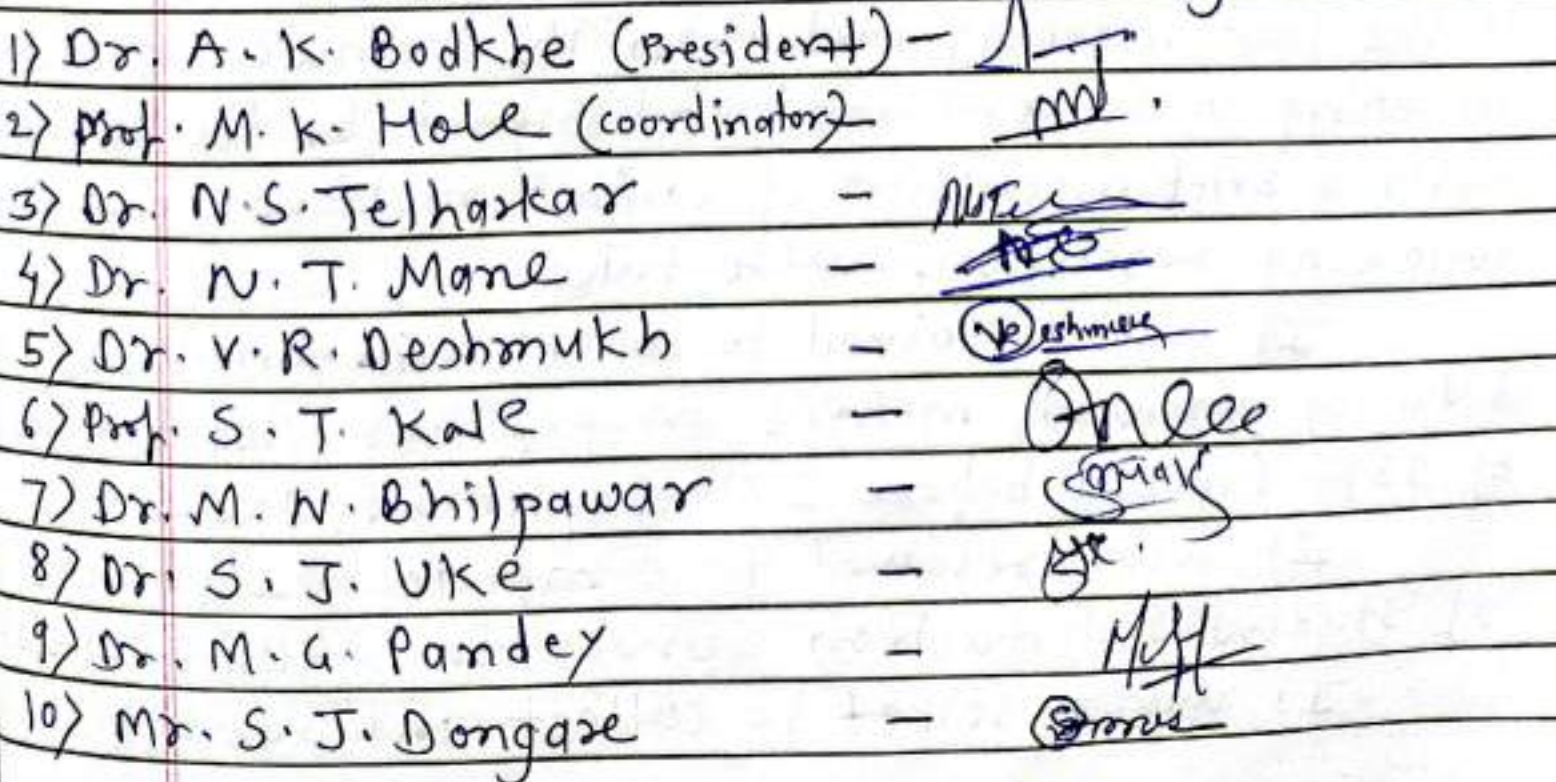 1) Dr. A. K. Bodkhe (President) -
2) Prof. M. K. Hole (coordinator)
3) Dr. N. S. Telharkar -
4) Dr. N. T. Mane -
5) Dr. V. R. Deshmukh -
6) Prof. S. T. Kale -
7) Dr. M. N. Bhilpawar -
8) Dr. S. J. Uke -
9) Dr. M. G. Pandey -
10) Mr. S. J. Dongare -